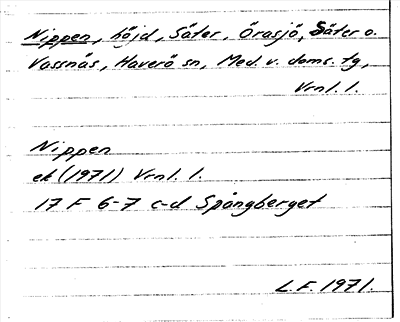 Nippen, höjd, Säter, Örasjö, Säter o.
Vassnäs, Haverö sn, Med. v. doms. tg,
Vrnl. l.
Nippen
ek (1971) Vrnl. l.
17 F 6-7 c-d Spångberget
L.F. 1971.